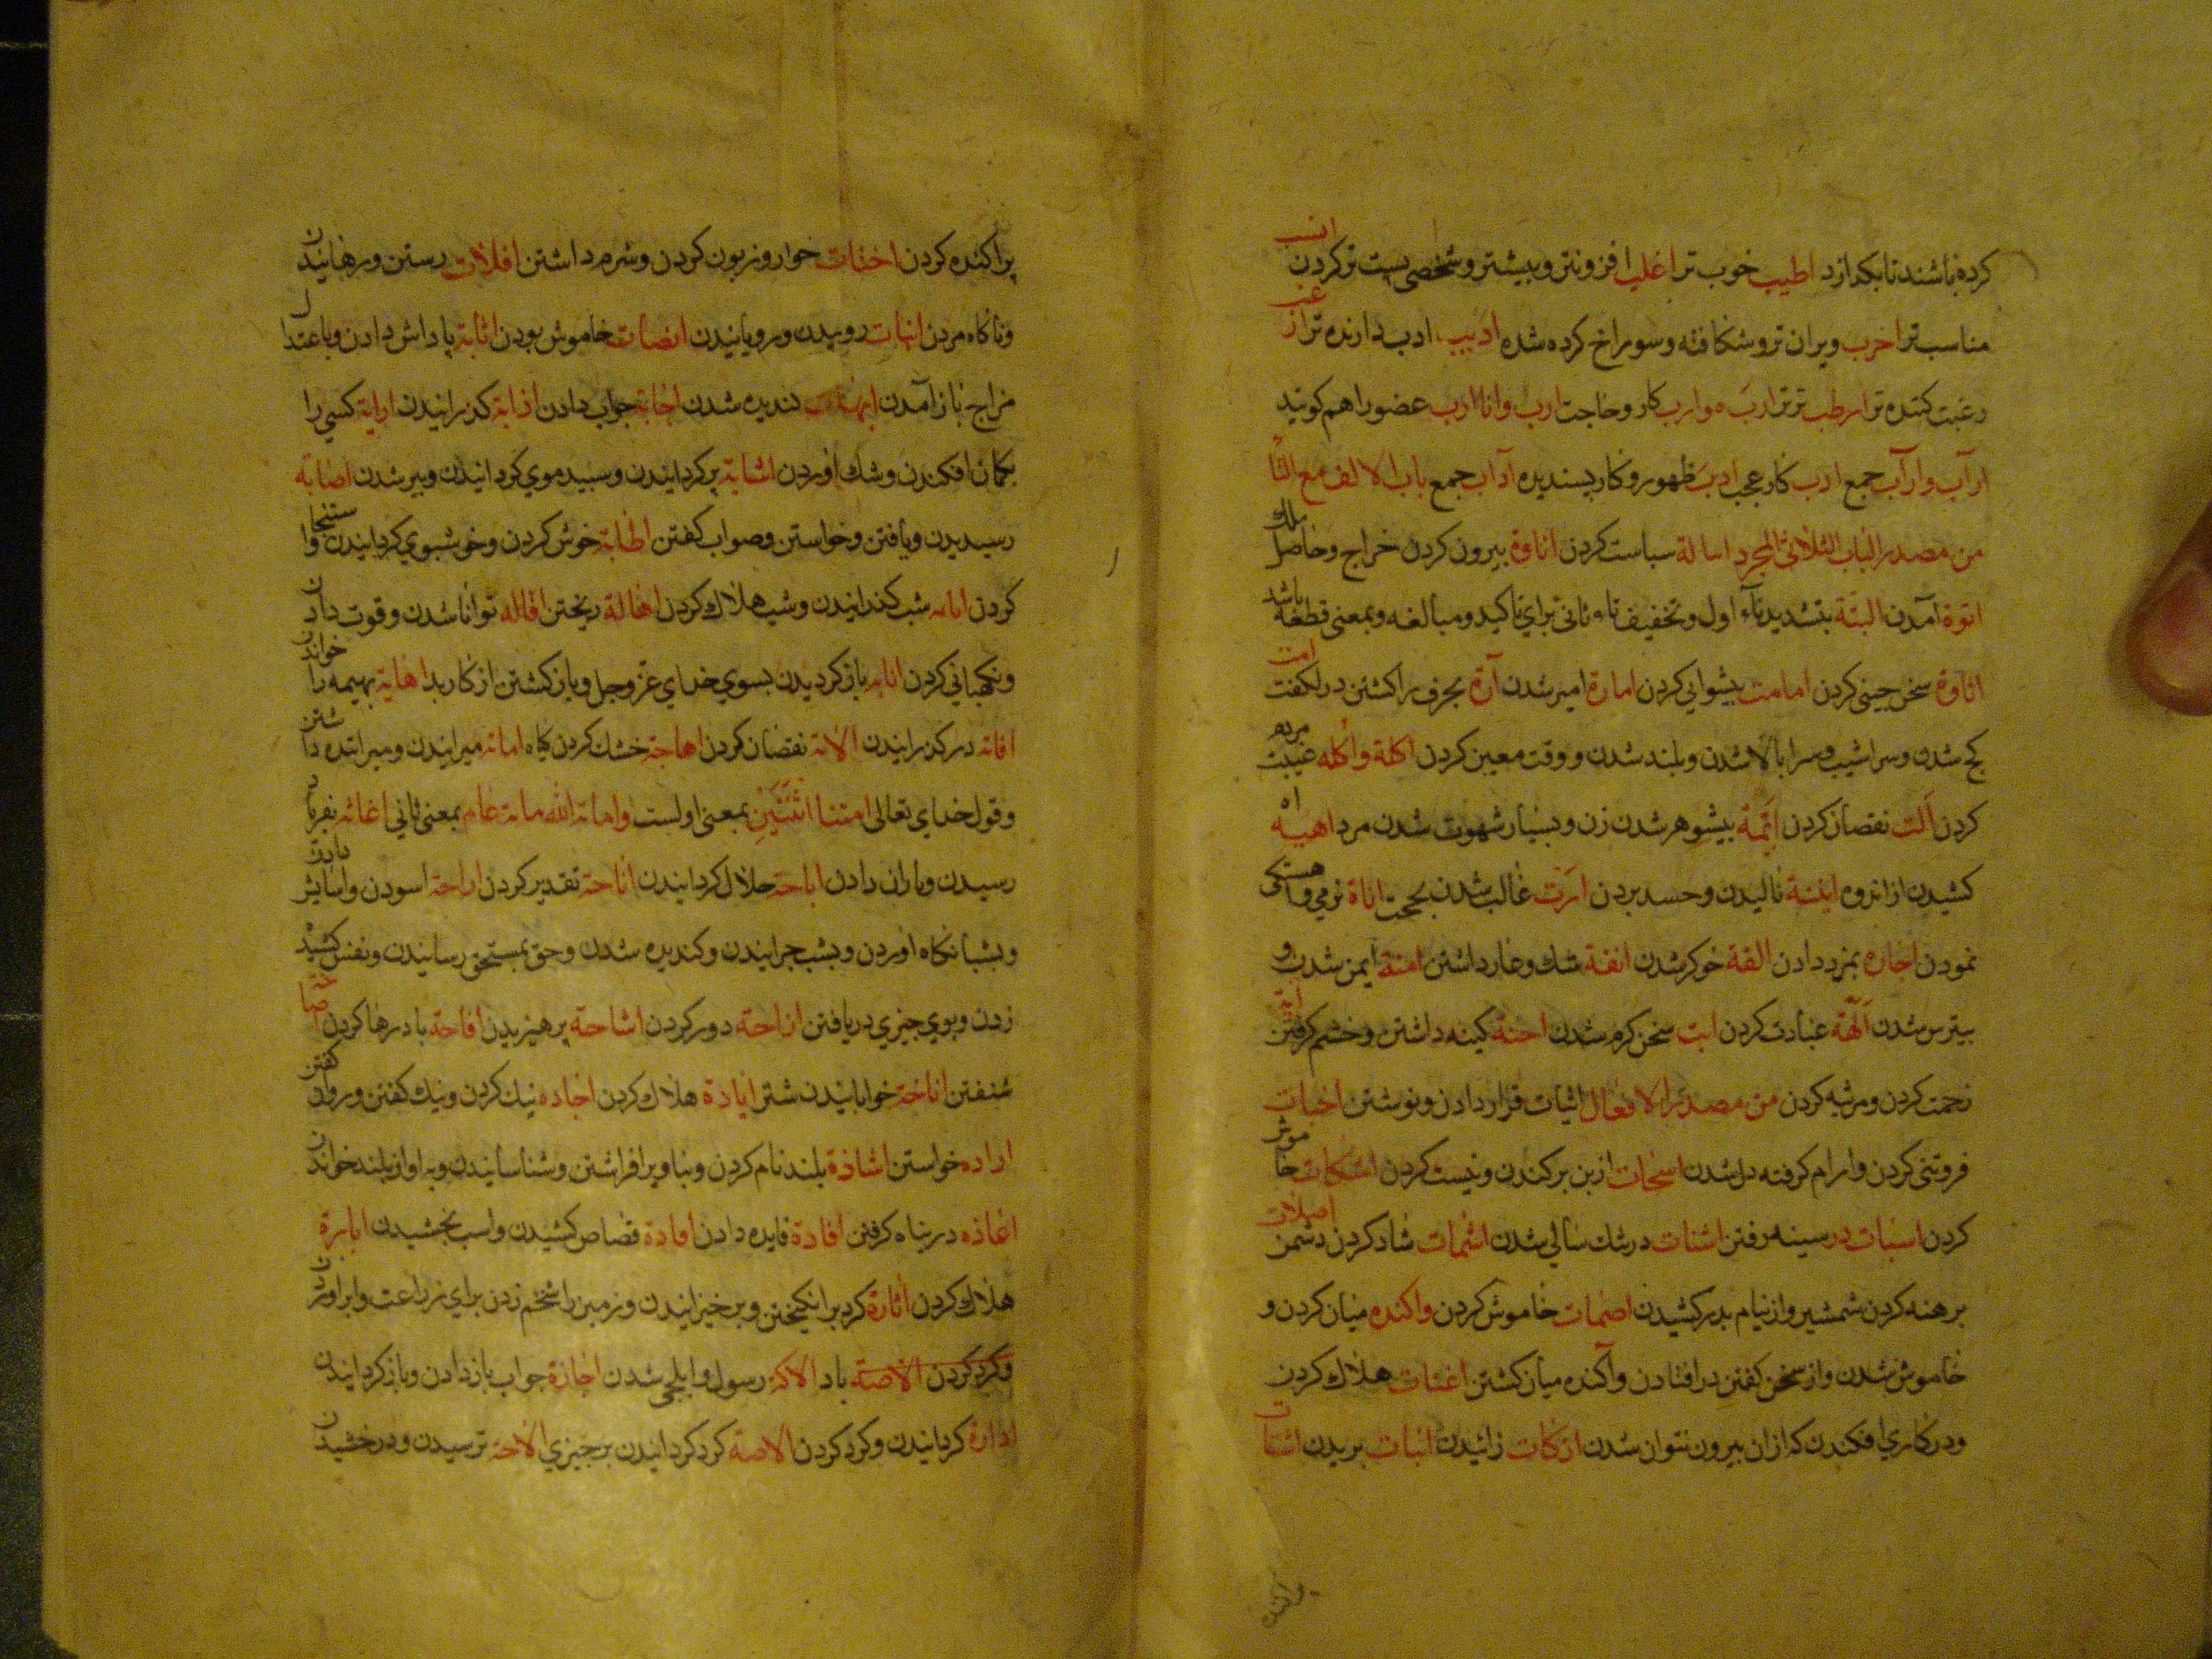 کرده باشند تا بکدازد اطیب خوب تر اغلب افزونتر و بیشتر و شخصی پست تر کردن انسب
مناسب تر اخرب ویران تر و شکافته و سوراخ کرده شده ادیب ادب دارنده تر ارغب
رغبت کننده تر ارطب ترتر ارب و مارب کار و حاجت ارب و انا ارب عضو را هم کویند
ارآب و ارآب جمع ادب کار عجب ادب ظهور و کار پسندیده آداب جمع باب الالف مع التا
من مصدر الباب الثلاثی المجرد اسالة سیاست کردن اتاوة بیرون کردن خراج و حاصل ملک
اتوة آمدن البتة بتشدید تاء اول و تخفیف تاء ثانی برای تاکید و مبالغه و بمعنی قطعه باشد
اثاوة سخن چینی کردن امامت پیشوایی کردن امارة امیر شدن آرة بحرف را کشتن در لکفت امت
کج شدن و سراشیب و سرا بالا شدن و بلند شدن و وقت معین کردن اکلة و اکله غیبت مردم
کردن الت نقصان کردن ایمة بیشوهر شدن زن و بسیار شهوت شدن مرد اهیه اه
کشیدن از اندوه اینة نالیدن و حسد بردن ارت غالب شدن بحجت اناة نرمی و آهستکی
نمودن اجاره بمزد دادن الفة خوکر شدن انفة ننک و عار داشتن امنة ایمن شدن و
بیترس شدن الهة عبادت کردن ابت سخن کرم شدن احنة کینه داشتن و خشم کرفتن ایة
رحمت کردن و مرثیه کردن من مصدر الافعال اثبات قرار دادن و نوشتن اخبات
فروتنی کردن و ارام کرفته دل شدن اسحات از بن برکندن و نیست کردن اسکات خاموش
کردن اسبات در سینه رفتن اسنات در ننک سالی شدن اشمات شاد کردن دشمن اصلات
برهنه کردن شمشیر و از نیام بدر کشیدن اصمات خاموش کردن و اکنده میان کردن و
خاموش شدن و از سخن کفتن در افتادن و آکنده میان کشتن اعنات هلاک کردن
و در کاری افکندن که از ان بیرون نتوان شدن ازکات زائیدن انبات بریدن اشتات
پراکنده کردن اخنات خوار و زبون کردن و شرم داشتن افلات رستن و رهانیدن
و ناکاه مردن انبات روییدن و رویانیدن انصات خاموش بودن اثابة پاداش دادن و باعتدال
مزاج باز آمدن کندیده شدن اجابة جواب دادن اذابة کدازانیدن ارابة کسی را
بکمان افکندن و شک آوردن اشابة پیر کردانیدن و سپید موی کردانیدن و پیر شدن اصابة
رسیدن و یافتن و خواستن و صواب کفتن اطابة خوش کردن و خوشبوی کردانیدن و استنجا
کردن شب کذرانیدن و شب هلاک کردن اهالة ریختن اقاله توانا شدن و قوت دادن
و نکهبانی کردن باز کردیدن بسوی خدای عز و جل و باز کشتن از کار بد اهابة بهیمه را خواندن
افاته در کذرانیدن الاتة نقصان کردن اهاجة خشک کردن کیاه اماتة میرانیدن و میرانده داشتن
و قول خدای تعالی امتنا اثنتین بمعنی اولست و اماته الله مائة عام بمعنی ثانی اغاثة بفریاد
رسیدن و باران دادن اباحة حلال کردانیدن اتاحة تقدیر کردن اراحة اسودن و اسایش دادن
و بشبانکاه اوردن و بشب چرانیدن و کندیده شدن و حق بمستحق رسانیدن و نفس کشیدن
زدن و بوی چیزی دریافتن ازاحة دور کردن اشاحة پرهیزیدن افاحة باد رها کردن اصاخة
شنفتن اناخة خوابانیدن شتر ابادة هلاک کردن اجاده نیک کردن و نیک کفتن و روان کفتن
اراده خواستن اشادة بلند نام کردن و بنا و بر افراشتن و شناسانیدن و به اواز بلند خواندن
اعاذه در پناه کرفتن افادة فایده دادن اقادة قصاص کشیدن و اسب بخشیدن ابارة
هلاک کردن اثارة کرد برانکیختن و برخیزانیدن و زمین را شخم زدن برای زراعت و ابر اوردن
و کرد کردن الاصة باد الاکة رسول و ایلچی شدن اجازة جواب باز دادن و باز کردانیدن
ادارة کردانیدن و کرد کردن الاصة کرد کردانیدن بر چیزی الاحة ترسیدن و درخشیدن